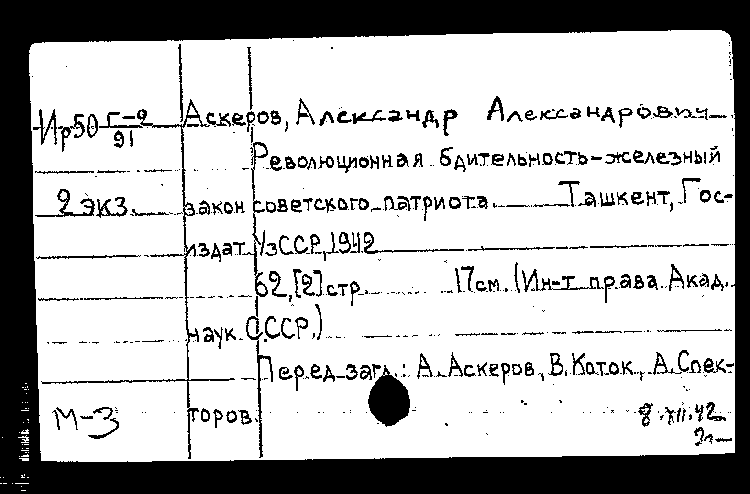 Ир50 Г-2/91 Аскеров, Александр Александрович
Революционная бдительность-железный
2 экз. закон советского патриота. Ташкент, Гос-
издат УзССР, 1942
62, [2] стр. 17см. (Ин-т права Акад.
наук СССР.)
Перед загл.: А. Аскеров, В. Коток, А. Спек-
М-3 торов. 8.XII.42